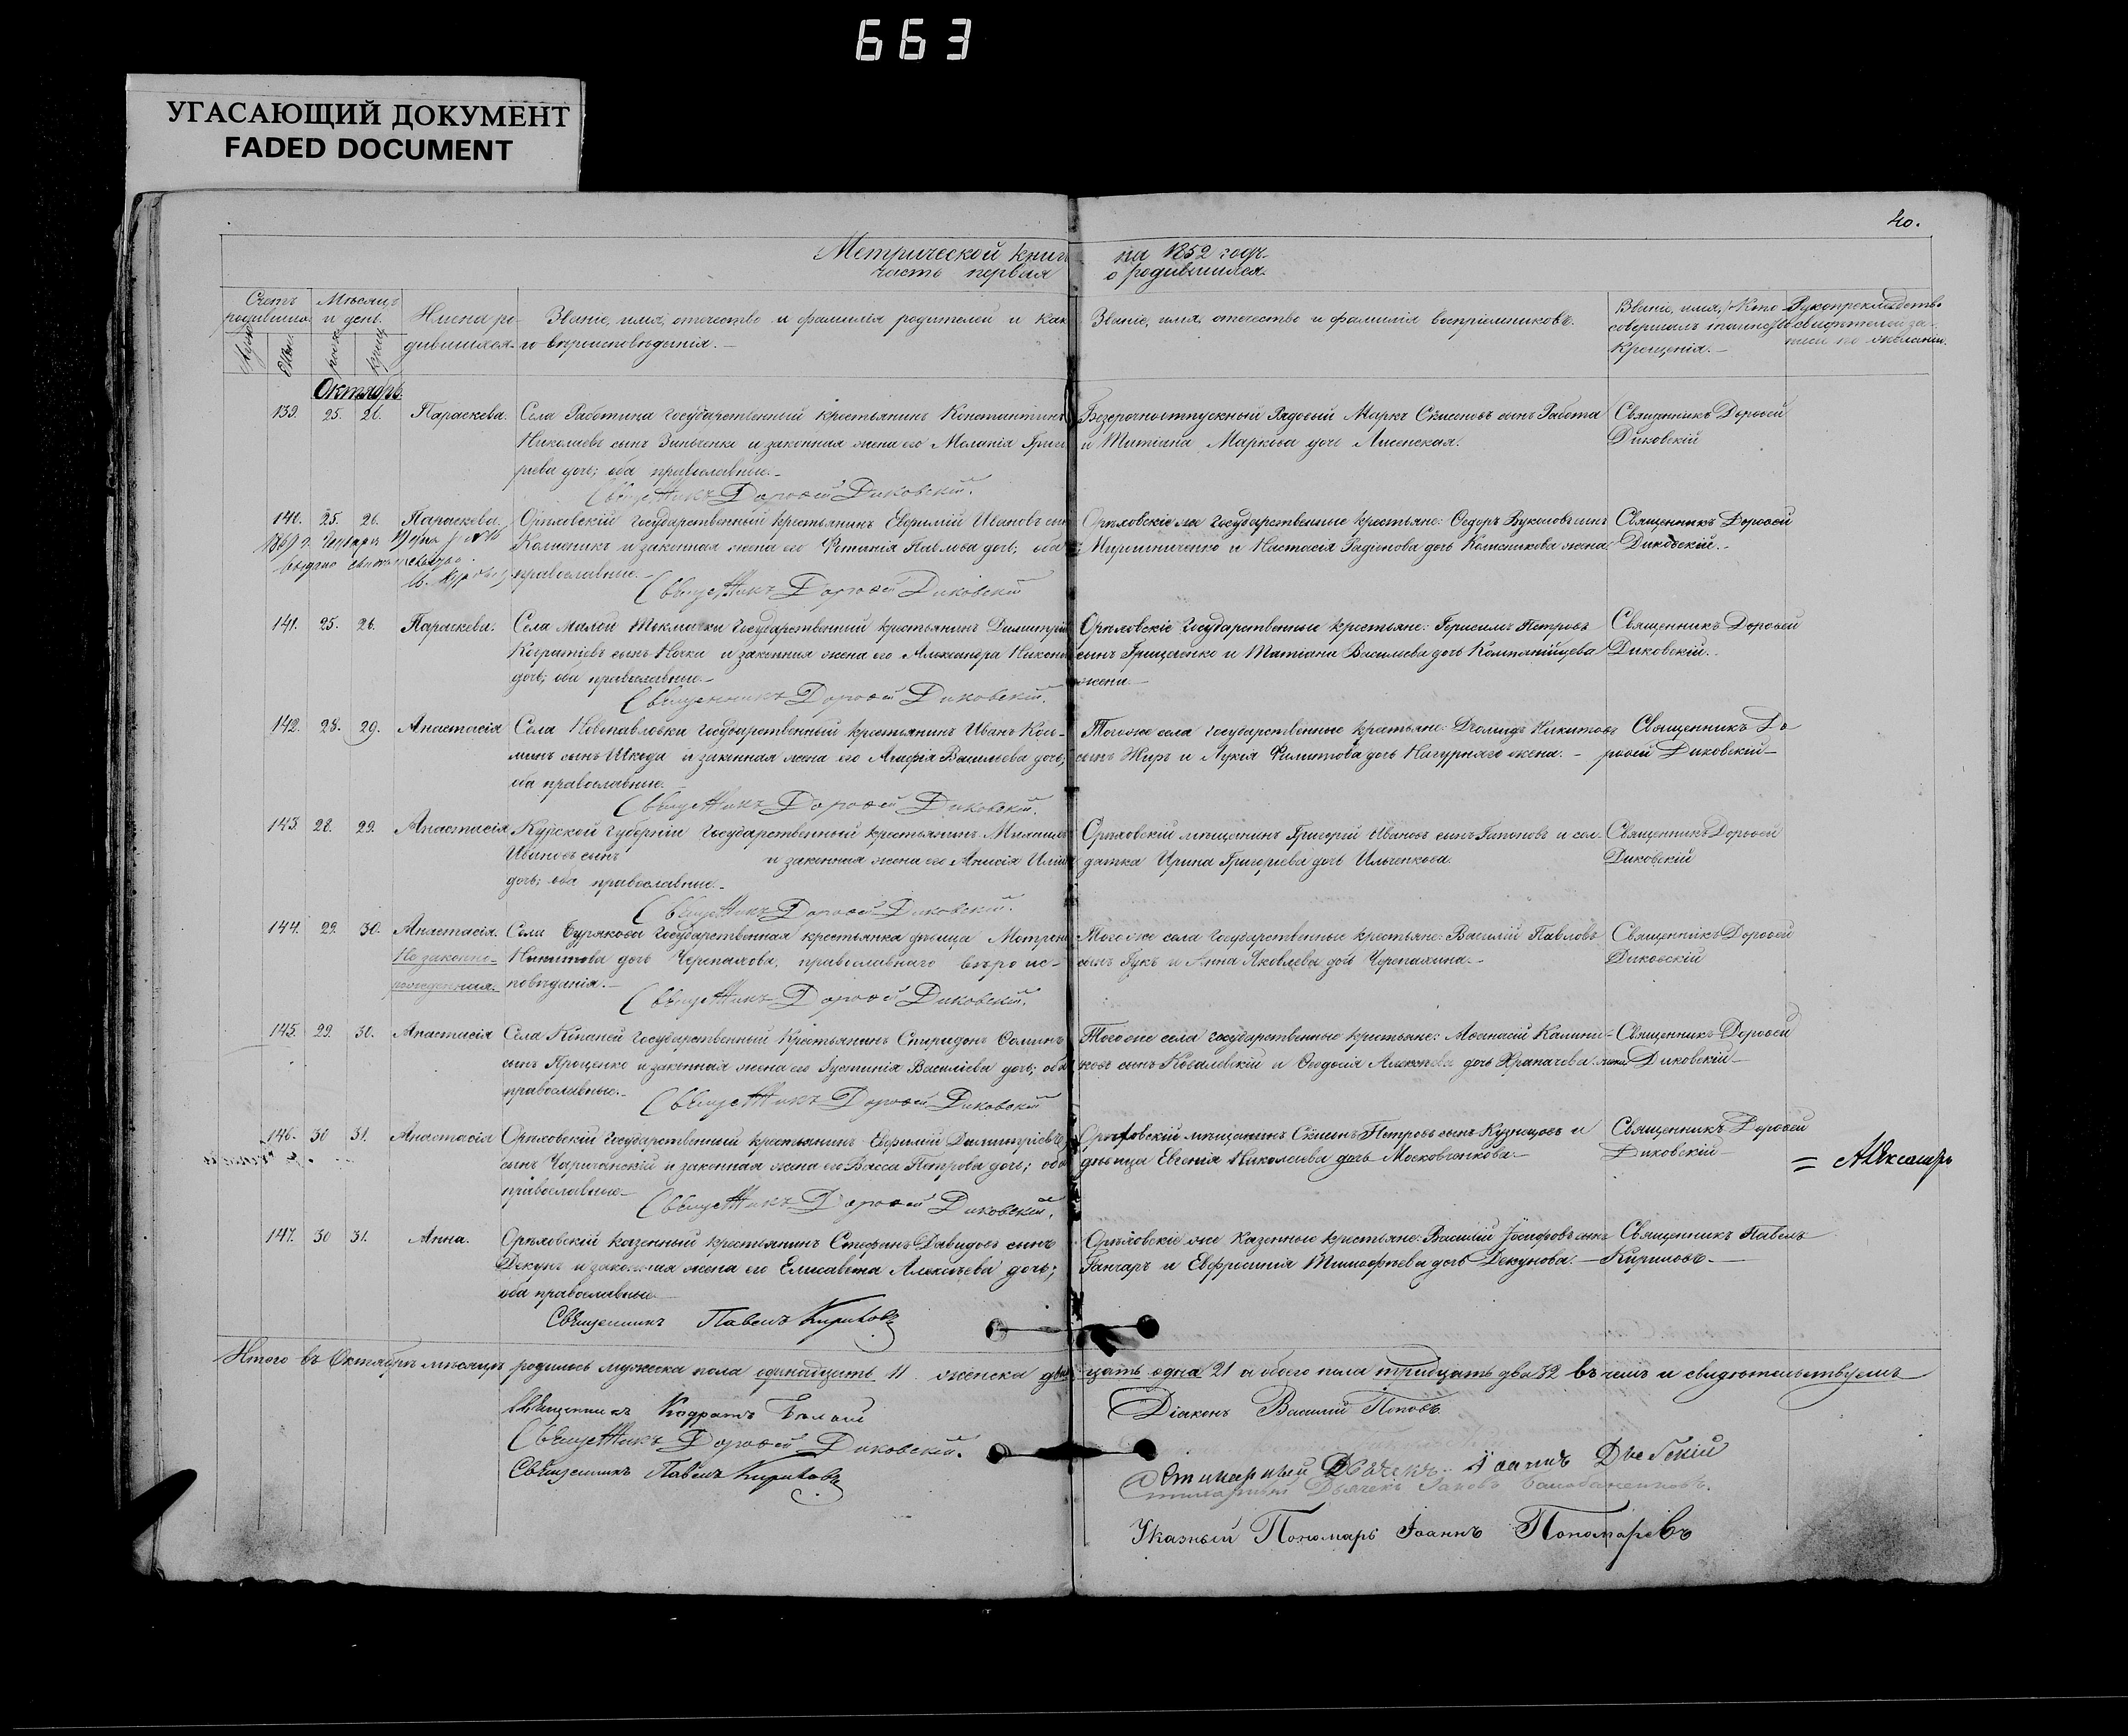 663
УГАСАЮЩИЙ ДОКУМЕНТ
FADED DOCUMENT
40.
Метрической книги на 1852 годъ.
часть первая о родившихся.
Счетъ родившихся
Мѣсяцъ и день.
Имена родившихся.
Званіе, имя, отечество и фамилія родителей и какого вѣроисповѣданія.
Званіе, имя, отечество и фамилія воспріемниковъ.
Званіе, имя, Кто совершалъ таинство крещенія.
Рукоприкладство свидѣтелей записи по желанію.
Октябрь
139. 25. 26. Параскева. Села Работина государственный крестьянинъ Константинъ
Николаевъ сынъ Зинченко и законная жена его Меланія Григо-
рьева дочь; оба православные.
Безсрочноотпускный Рядовый Маркъ сынъ Работа
и Татіана Маркова дочь Лисенская.
Священникъ Дорофей
Диковскій
Священникъ Дорофей Диковскій.
140. 25. 26. Параскева. Орѣховскій государственный крестьянинъ Евфимій Ивановъ сынъ
Колесникъ и законная жена его Фотинія Павлова дочь; оба
православные.
Орѣховскіе же государственные крестьяне: Федоръ Вуколовъ сынъ
Мирошниченко и Настасія Радіонова дочь Колесникова жена.
Священникъ Дорофей
Диковскій.
Священникъ Дорофей Диковскій
141. 25. 26. Параскева. Села Малой Токмачки государственный крестьянинъ Димитрій
Кодратіевъ сынъ Носка и законная жена его Александра Никонова
дочь; оба православные.
Орѣховскіе государственные крестьяне: Герасимъ Петровъ
сынъ Грищенко и Татіана Васильева дочь Компанійцева
жена.
Священникъ Дорофей
Диковскій.
Священникъ Дорофей Диковскій.
142. 28. 29. Анастасія Села Новопавловки государственный крестьянинъ Иванъ Кось-
минъ сынъ Шкода и законная жена его Агафія Васильева дочь;
оба православные.
Того же села государственные крестьяне: Діомидъ Никитовъ
сынъ Жиръ и Лукія Филиппова дочь Нагурняго жена.
Священникъ До-
рофей Диковскій
Священникъ Дорофей Диковскій.
143. 28. 29. Анастасія Курской губерніи государственный крестьянинъ
Ивановъ сынъ и законная жена его Анисія
дочь; оба православные.
Орѣховскій мѣщанинъ Григорій Ивановъ сынъ Гапоновъ и сол-
датка Ирина Григорьева дочь Ильченкова.
Священникъ Дорофей
Диковскій
Священникъ Дорофей Диковскій.
144. 29. 30. Анастасія. Села Бурякова государственная крестьянка дѣвица Мотрона
Незаконно- Никитова дочь Черепахова, православнаго вѣроис-
рожденная. повѣданія.
Того же села государственные крестьяне: Василій Павловъ
сынъ Гукъ и Анна Яковлева дочь Черепахина.
Священникъ Дорофей
Диковскій
Священникъ Дорофей Диковскій.
145. 29. 30. Анастасія Села Копаней государственный крестьянинъ Спиридонъ Фоминъ
сынъ Проценко и законная жена его Іустинія Васильева дочь; оба
православные.
Того же села государственные крестьяне: Афанасій Калини-
ковъ сынъ Ковалевскій и Феодосія Алексѣева дочь Храпачева жена
Священникъ Дорофей
Диковскій
Священникъ Дорофей Диковскій
146. 30 31. Анастасія Орѣховскій государственный крестьянинъ Евфимій Димитріевъ
сынъ Чаричанскій и законная жена его Васса Петрова дочь; оба
православные
Орѣховскій мѣщанинъ Петровъ сынъ Кузнецовъ и
дѣвица Евгенія Николаева дочь Московченкова.
Священникъ Дорофей
Диковскій
Священникъ Дорофей Диковскій.
147. 30 31. Анна. Орѣховскій казенный крестьянинъ Стефанъ Давидовъ сынъ
Декунъ и законная жена его Елисавета Алексѣева дочь;
оба православные
Орѣховскіе же казенные крестьяне: Василій Іосифовъ сынъ
Ганчаръ и Евфросинія Тимофѣева дочь Декунова.
Священникъ Павелъ
Кириловъ.
Священникъ Павелъ Кириловъ
Итого въ Октябрѣ мѣсяцѣ родилось мужеска пола одинадцать 11 женска двадцать одна 21 а обоего пола тридцать два 32 въ чемъ и свидѣтельствуемъ
Священникъ Кодратъ Бѣлый
Священникъ Дорофей Диковскій.
Священникъ Павелъ Кириловъ
Діаконъ Василій Поповъ.
Стихарный Дьячекъ Іоаннъ
Стихарный Дьячекъ
Указный Пономарь Іоаннъ Пономаревъ